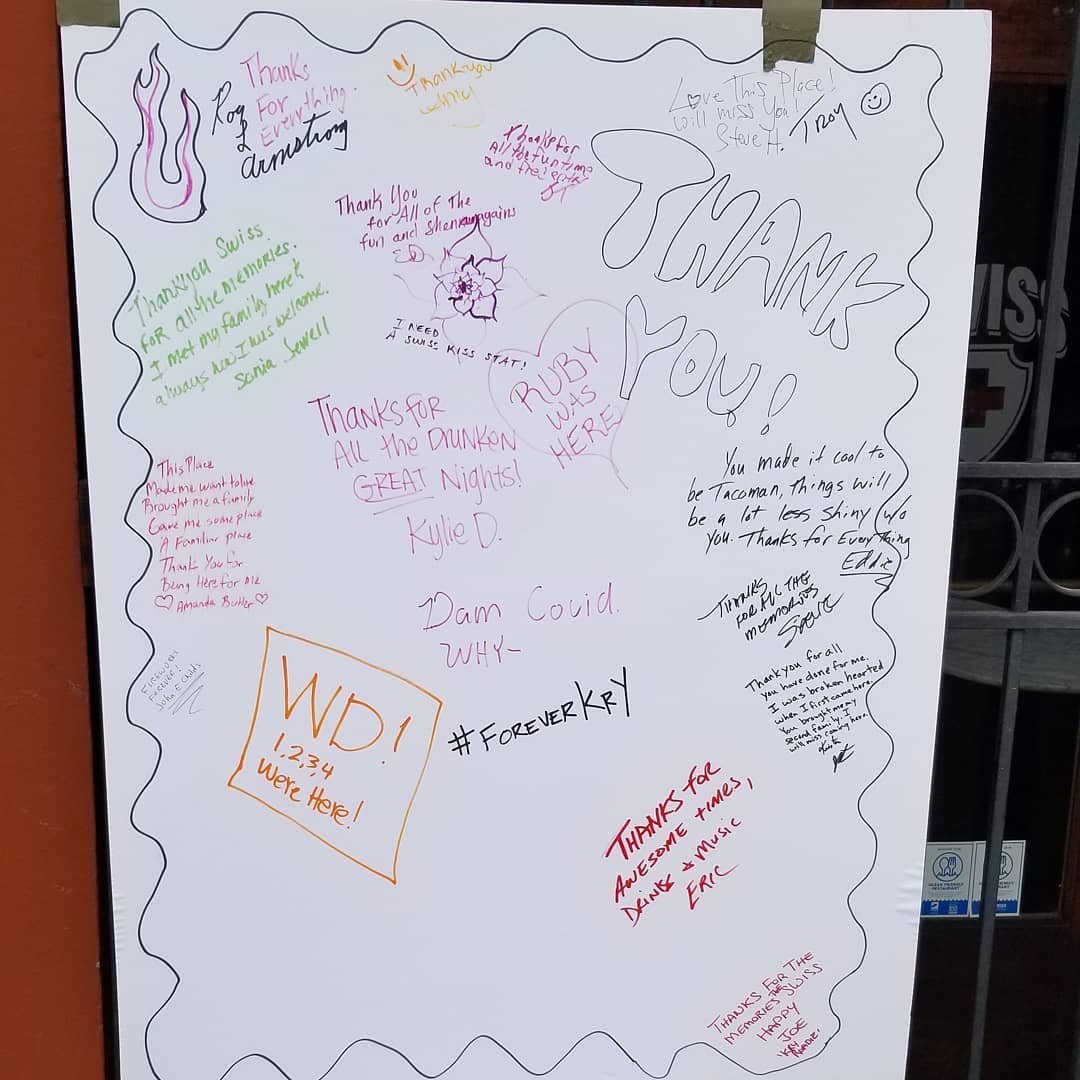 Thanks
For
Everything.
Roy
L
Armstrong
Thank you
Love This Place!
Will miss You!
Steve H.
Troy
Thanks for
All the fun time
and
THANK
YOU!
Thank You
for All of The
fun and
Thankyou Swiss.
FOR all the memories.
I met my family here &
always was welcome.
Sonia Sewell
I NEED
A SWISS KISS STAT!
RUBY
WAS
HERE
THANKS FOR
All the DRUNKEN
GREAT Nights!
Kylie D.
This Place
Made me want to live
Brought me a family
Gave me some place
A Familiar place
Thank You for
Being Here for Me
Amanda Butler
You made it cool to
be Tacoman, things will
be a lot less shiny w/o
you. Thanks for Everything
Eddie
THANKS
FOR ALL THE
MEMORIES
Steve
Dam Covid.
WHY-
FIREWORKS
FOREVER!
John E Childs
WD!
1,2,3,4
Were Here!
#FOREVERKRY
Thank you for all
you have done for me.
I was broken hearted
when I first came here.
You brought me my
second family. I
will miss coming here.
THANKS FOR
AWESOME times,
DRINKS & Music
ERIC
THANKS FOR THE
MEMORIES THE SWISS
HAPPY
JOE
KRY
WISS
OCEAN FRIENDLY
RESTAURANT